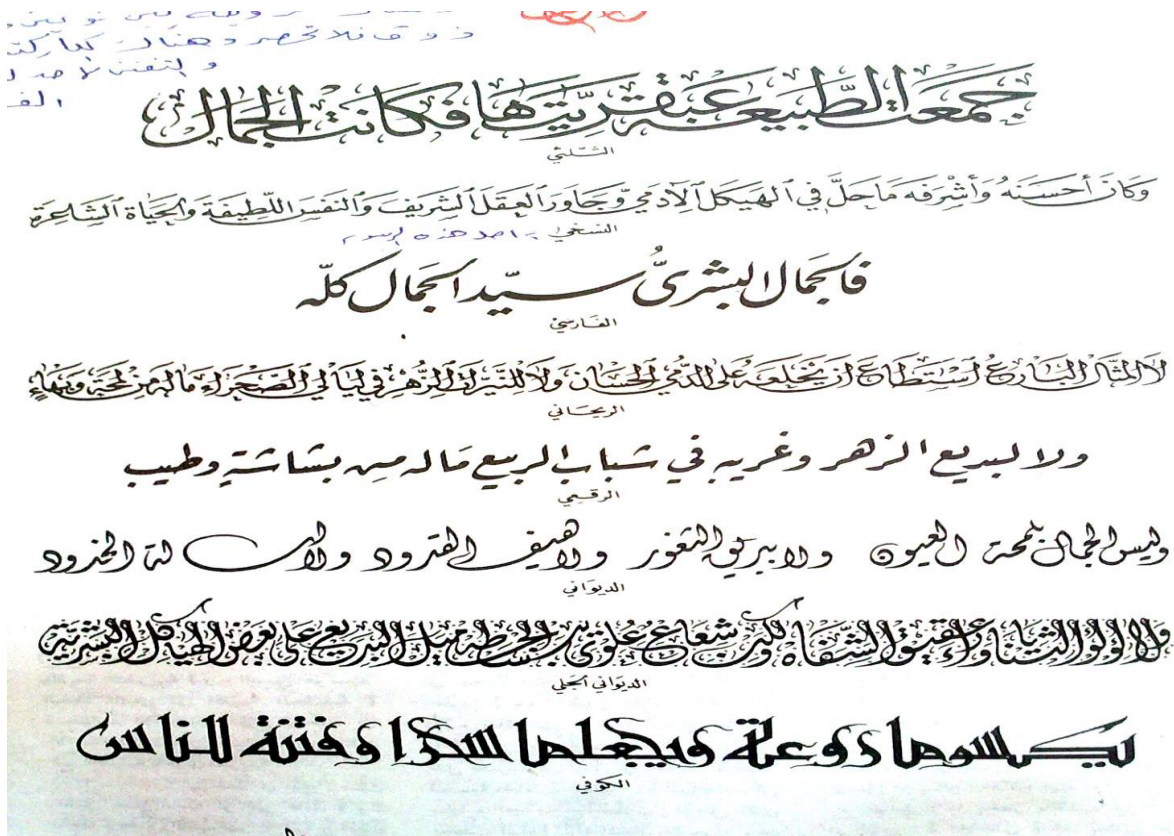 ذوق فلا تحصر وهناك
جمعت الطبيعة عبقريتها فكانت الجمال
الثلثي
وَكَانَ أَحسَنَهُ وَأَشْرَفَه مَا حَلَّ في ٱلهَيكَلِ ٱلآدَمِيّ وَجَاوَرَ ٱلعَقلَ ٱلشَرِيفَ وَٱلنَفسَ اللَّطِيفَةَ وَٱلحَيَاةَ ٱلشَاعِرَة
النسخي
هذه الرسوم
فالجمال البشرىُّ سيّد الجمال كلّه
الفارسي
لا المثّال البارع استطاع ان يخلعه على الدمى الحسان ولا للنيّرات الزهر في ليالي الصحراء ماله من لمحة وبهاء
الريحاني
ولا لبديع الزهر وغريبه في شباب الربيع ماله من بشاشة وطيب
الرقعي
وليس الجمال بلمحة العيون ولا ببريق الثغور ولا هيف القدود ولا أسالة الخدود
الديواني
ولا لؤلؤ الثنايا وعقيق الشفاه ولكن شعاع علوي يبسطه الجميل البديع على بعض الهياكل البشرية
الديواني الجلي
يكسوها روعة ويجعلها سحرا وفتنة للناس
الكوفي